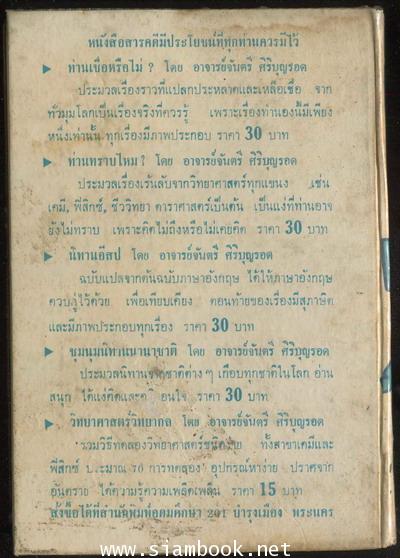 หนังสือสารคดีมีประโยชน์ที่ทุกท่านควรมีไว้
▶ ท่านเชื่อหรือไม่ ? โดย อาจารย์จันตรี ศิริบุญรอด
ประมวลเรื่องราวที่แปลกประหลาดและเหลือเชื่อ จาก
ทั่วมุมโลกเป็นเรื่องจริงที่ควรรู้ เพราะเรื่องทำนองนี้มีเพียง
หนึ่งเท่านั้น ทุกเรื่องมีภาพประกอบ ราคา 30 บาท
▶ ท่านทราบไหม ? โดย อาจารย์จันตรี ศิริบุญรอด
ประมวลเรื่องเร้นลับจากวิทยาศาสตร์ทุกแขนง เช่น
เคมี, ฟิสิกซ์, ชีววิทยา ดาราศาสตร์เป็นต้น เป็นแง่ที่ท่านอาจ
ยังไม่ทราบ เพราะคิดไม่ถึงหรือไม่เคยคิด ราคา 30 บาท
▶ นิทานอีสป โดย อาจารย์จันตรี ศิริบุญรอด
ฉบับแปลจากต้นฉบับภาษาอังกฤษ ได้ให้ภาษาอังกฤษ
ควบคู่ไว้ด้วย เพื่อเทียบเคียง ตอนท้ายของเรื่องมีสุภาษิต
และมีภาพประกอบทุกเรื่อง ราคา 30 บาท
▶ ชุมนุมนิทานนานาชาติ โดย อาจารย์จันตรี ศิริบุญรอด
ประมวลนิทานจากชาติต่าง ๆ เกือบทุกชาติในโลก อ่าน
สนุก ได้แง่คิดและคติสอนใจ ราคา 30 บาท
▶ วิทยาศาสตร์วิทยากล โดย อาจารย์จันตรี ศิริบุญรอด
รวมวิธีทดลองวิทยาศาสตร์ชนิดง่าย ทั้งสาขาเคมีและ
ฟิสิกซ์ ประมาณ 70 การทดลอง อุปกรณ์หาง่าย ปราศจาก
อันตราย ได้ความรู้ความเพลิดเพลิน ราคา 15 บาท
สั่งซื้อได้ที่สำนักพิมพ์อุดมศึกษา 201 บำรุงเมือง พระนคร
www.siambook.net